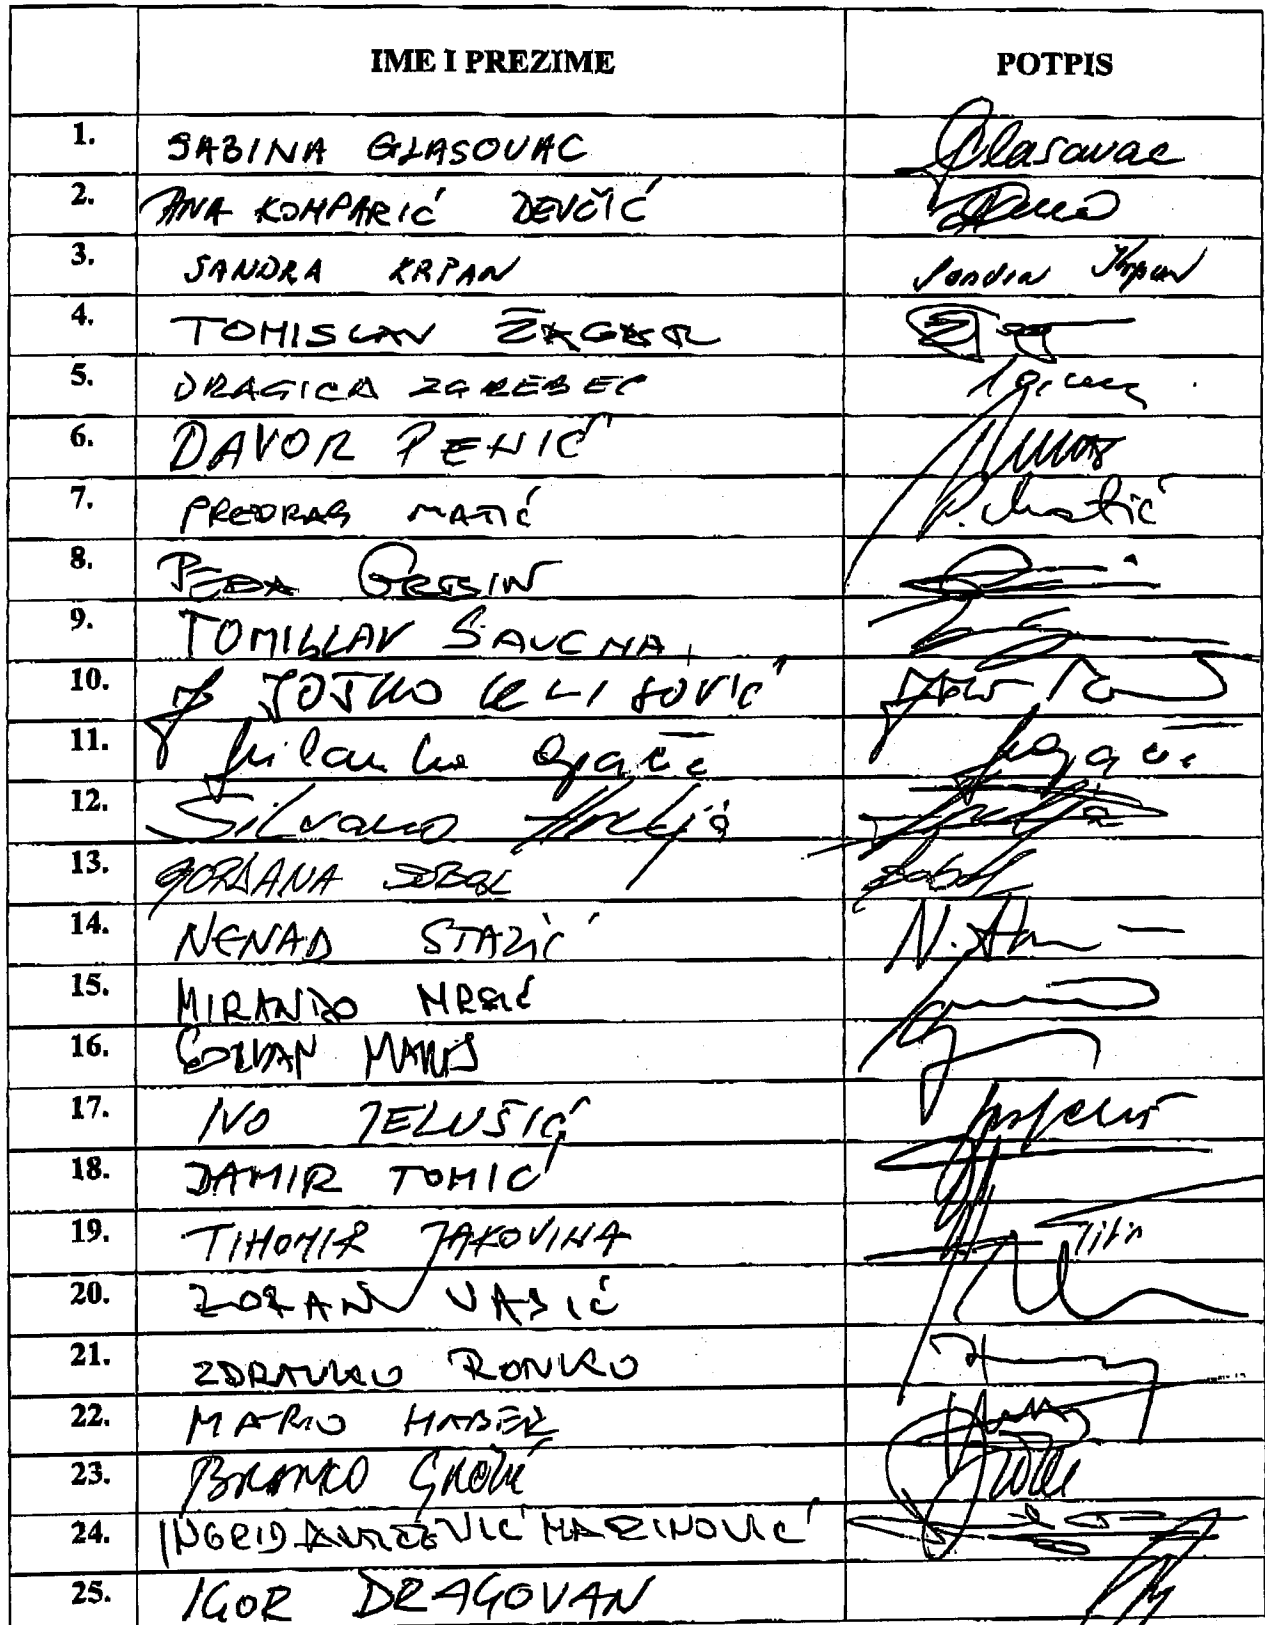 IME I PREZIME POTPIS
1. SABINA GLASOVAC Glasovac
2. ANA KOMPARIĆ DEVČIĆ
3. SANDRA KRPAN Sandra Krpan
4. TOMISLAV ŽAGAR
5. DRAGICA ZGREBEC
6. DAVOR PENIĆ
7. PREDRAG MATIĆ P. Matić
8. PEĐA GRBIN
9. TOMISLAV SAUCHA
10. JOŠKO KLISOVIĆ
11. Milanka Opačić
12. Silvano Hrelja
13. GORDANA SOBOL Sobol
14. NENAD STAZIĆ
15. MIRANDO MRSIĆ
16. GORDAN MARAS
17. IVO JELUŠIĆ
18. DAMIR TOMIĆ
19. TIHOMIR JAKOVINA
20. ZORAN VASIĆ
21. ZDRAVKO RONKO
22. MARIO HABEK
23. BRANKO GROŠIĆ
24. INGRID ANTIČEVIĆ MARINOVIĆ
25. IGOR DRAGOVAN